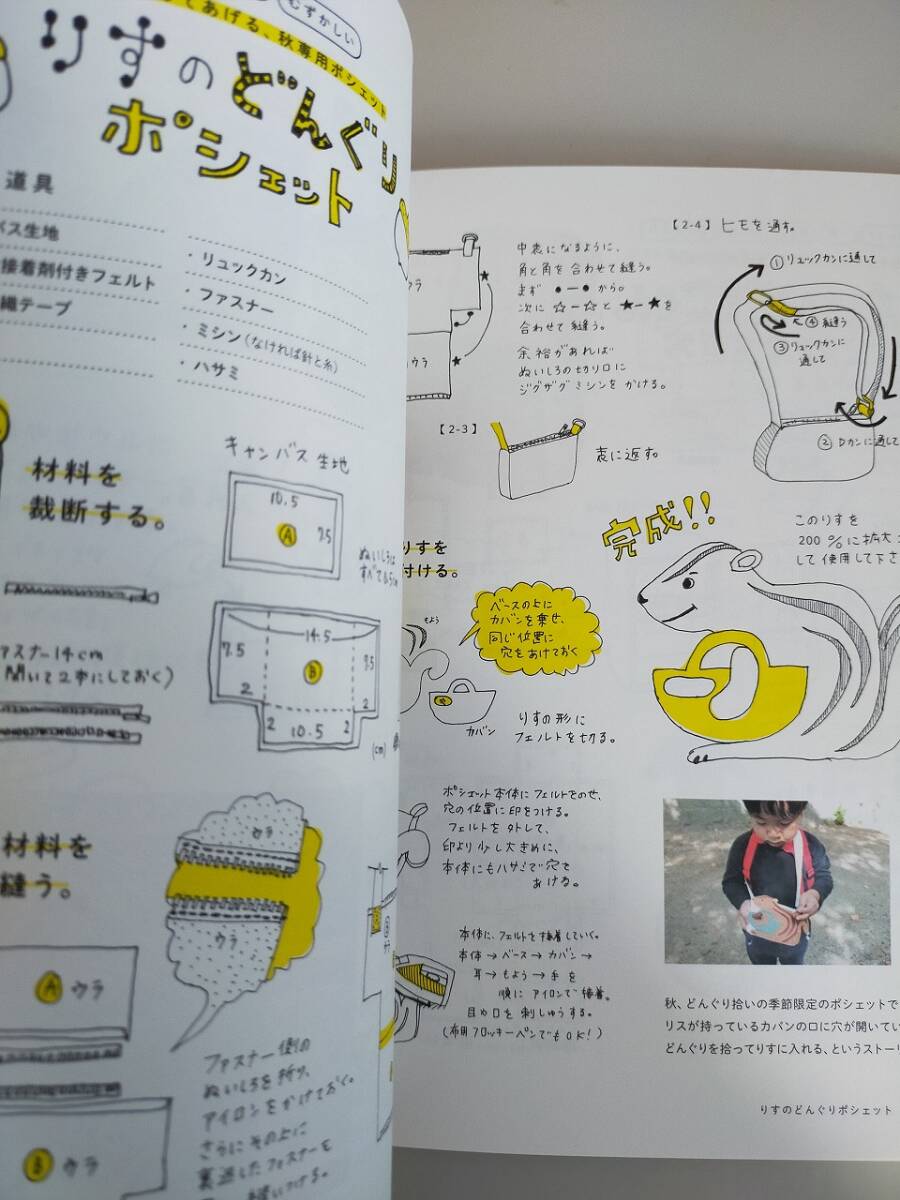 むずかしい
てあげる、秋専用ポシェット
りすのどんぐり
ポシェット
道具
バス生地
接着剤付きフェルト
織テープ
・リュックカン
・ファスナー
・ミシン(なければ針と糸)
・ハサミ
材料を
裁断する。
キャンバス生地
10.5
A
7.5
ぬいしろは
すべて0.5cm
14.5
7.5
B
7.5
2
10.5
2
2
(cm)
ファスナー14cm
開いて2本にしておく)
材料を
縫う。
ウラ
ウラ
A ウラ
B ウラ
ファスナー側の
ぬいしろを折り、
アイロンをかけておく。
さらにその上に
裏返したファスナーを
縫いつける。
ウラ
ウラ
中表になるように、
角と角を合わせて縫う。
まず ●ー● から。
次に ☆ー☆ と ★ー★ を
合わせて縫う。
余裕があれば
ぬいしろの切り口に
ジグザグミシンをかける。
【2-3】
表に返す。
【2-4】ヒモを通す。
①リュックカンに通して
④縫う
③リュックカンに
通して
②Dカンに通して
りすを
付ける。
もよう
ベースの上に
カバンを乗せ、
同じ位置に
穴をあけておく
カバン
りすの形に
フェルトを切る。
完成!!
このりすを
200%に拡大
して使用して下さ
ポシェット本体にフェルトをのせ、
穴の位置に印をつける。
フェルトを外して、
印より少し大きめに、
本体にもハサミで穴を
あける。
本体に、フェルトを接着していく。
本体→ベース→カバン→
耳→もよう→手を
順にアイロンで接着。
目や口を刺しゅうする。
(布用フロッキーペンでもOK!)
秋、どんぐり拾いの季節限定のポシェットで
リスが持っているカバンの口に穴が開いてい
どんぐりを拾ってりすに入れる、というストーリ
りすのどんぐりポシェット